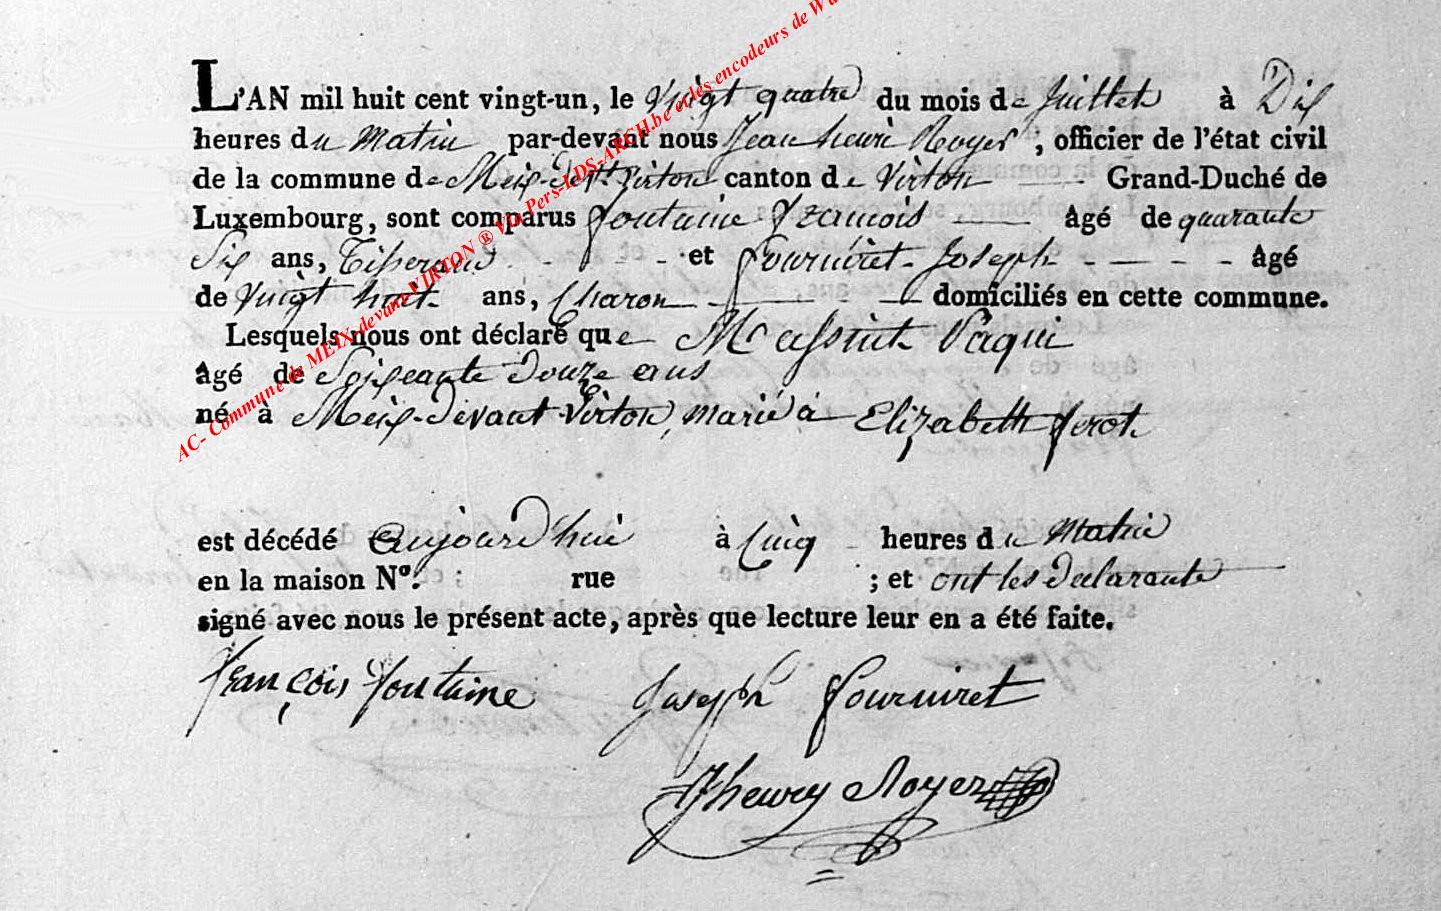 L'AN mil huit cent vingt-un, le vingt quatre du mois de juillet à Dix
heures du Matin par-devant nous Jean henri Royer, officier de l'état civil
de la commune de Meix-dev.t Virton canton de Virton Grand-Duché de
Luxembourg, sont comparus fontaine francois âgé de quarante
Six ans, Tisserand et fourniret Joseph âgé
de vingt huit ans, Charon domiciliés en cette commune.
Lesquels nous ont déclaré que Massint
âgé de Soixante douze ans
né à Meix-devant Virton, marié à Elizabeth ferot
est décédé aujourd'hui à Cinq heures du Matin
en la maison N°. : rue ; et ont les declarants
signé avec nous le présent acte, après que lecture leur en a été faite.
françois fontaine Joseph fourniret
Jhenry Royer
AC- Commune de MEIX-devant-VIRTON ® Via Pers-LDS-ARCH.be et les encodeurs de